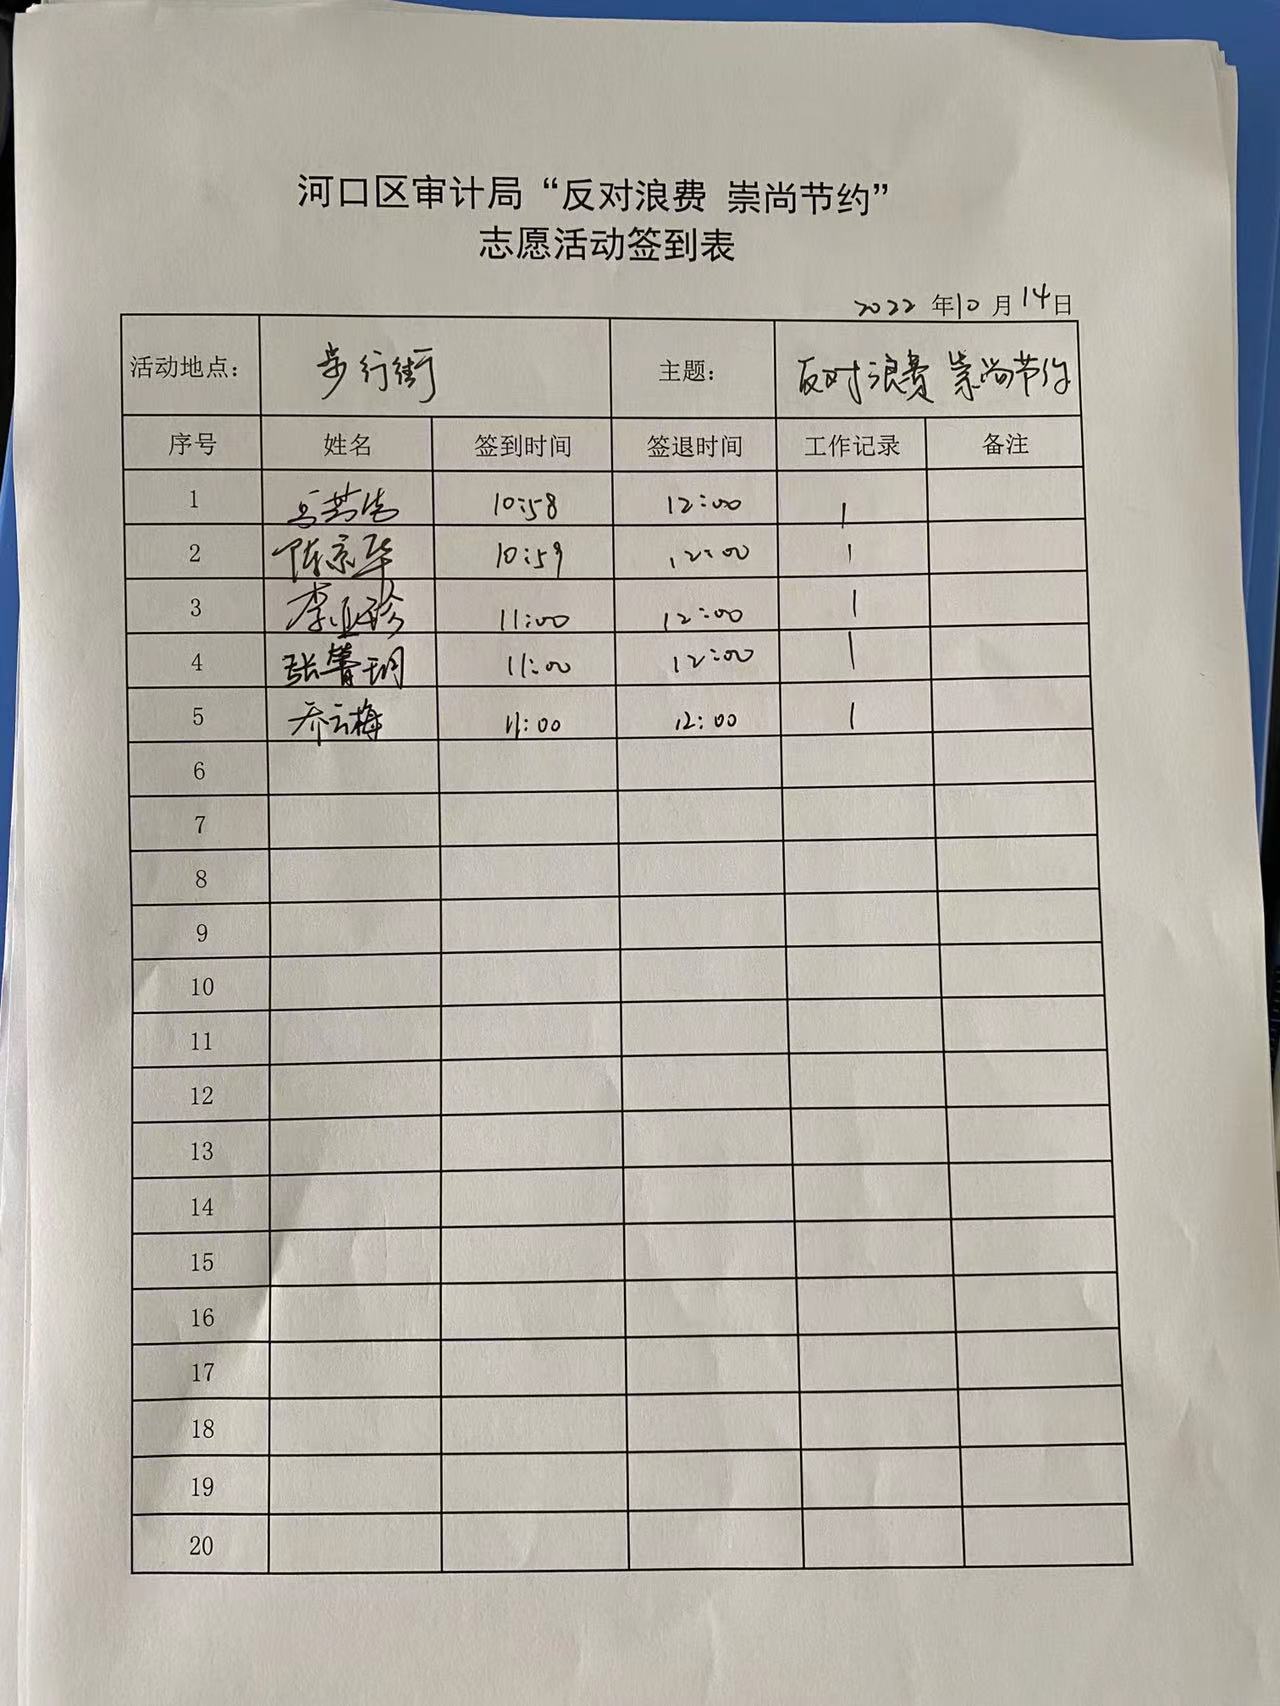 河口区审计局“反对浪费 崇尚节约”
志愿活动签到表
2022 年10 月 14日
活动地点： 步行街 主题： 反对浪费 崇尚节约
序号 姓名 签到时间 签退时间 工作记录 备注
1 10:58 12:00 1
2 陈京华 10:59 12:00 1
3 李亚珍 11:00 12:00 1
4 张馨玥 11:00 12:00 1
5 乔云梅 11:00 12:00 1
6
7
8
9
10
11
12
13
14
15
16
17
18
19
20